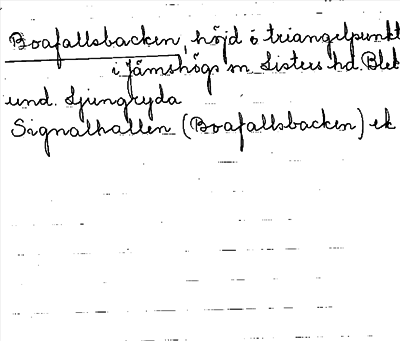 Boafallsbacken, höjd o triangelpunkt
i Jämshögs sn Listers hd. Blek
und. Ljungryda
Signalhallen (Boafallsbacken) ek